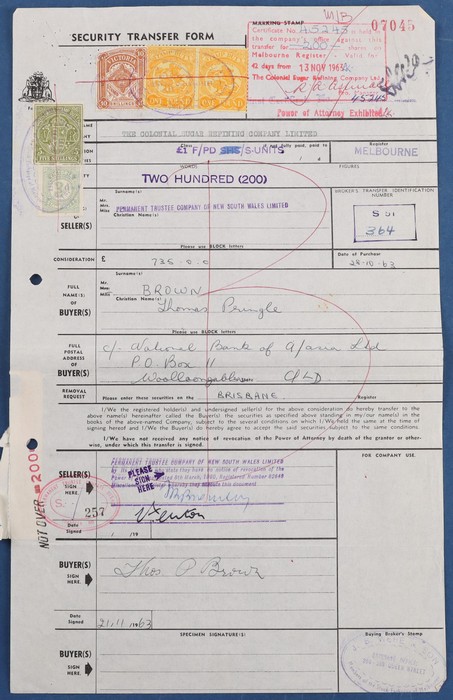 M/B
SECURITY TRANSFER FORM
MARKING STAMP
07045
Certificate No. 45243
the company against this
transfer for 200 shares on
Melbourne Register Valid for
42 days from 13 NOV 1963
The Colonial Sugar Refining Company Ltd.
45245
Power of Attorney Exhibited
VICTORIA
NAME
THE COLONIAL SUGAR REFINING COMPANY LIMITED
£1 F/PD S-UNITS
REGISTER
MELBOURNE
WORDS
FIGURES
TWO HUNDRED (200)
Surname/s:
Mr.
Mrs.
Miss
PERMANENT TRUSTEE COMPANY OF NEW SOUTH WALES LIMITED
Christian Name/s:
BROKER'S TRANSFER IDENTIFICATION
NUMBER
S 01
364
OF
SELLER(S)
Please use BLOCK letters
CONSIDERATION
£
735.0.0
Date of Purchase
28.10.63
Surname/s:
FULL
NAME(S)
OF
BUYER(S)
Mr.
Mrs.
Miss
BROWN
Christian Name/s:
Thomas Pringle
Please use BLOCK letters
FULL
POSTAL
ADDRESS
OF
BUYER(S)
c/- National Bank of A/asia Ltd
P.O. Box 11
Woolloongabba
QLD
REMOVAL REQUEST
Please enter these securities on the
BRISBANE
Register
I/We the registered holder(s) and undersigned seller(s) for the above consideration do hereby transfer to the
above name(s) hereinafter called the Buyer(s) the securities as specified above standing in my/our name(s) in the
books of the above-named Company, subject to the several conditions on which I/We held the same at the time of
signing hereof and I/We the Buyer(s) do hereby agree to accept the said securities subject to the same conditions.
I/We have not received any notice of revocation of the Power of Attorney by death of the grantor or otherwise, under which this transfer is signed.
PERMANENT TRUSTEE COMPANY OF NEW SOUTH WALES LIMITED
FOR COMPANY USE.
PLEASE
SIGN
HERE
SELLER(S)
SIGN
HERE.
NOT OVER £200
257
Date
Signed
/ /19
BUYER(S)
SIGN
HERE.
Thos P Brown
Date
Signed
21/11/1963
SPECIMEN SIGNATURE(S)
Buying Broker's Stamp
BUYER(S)
SIGN
HERE.